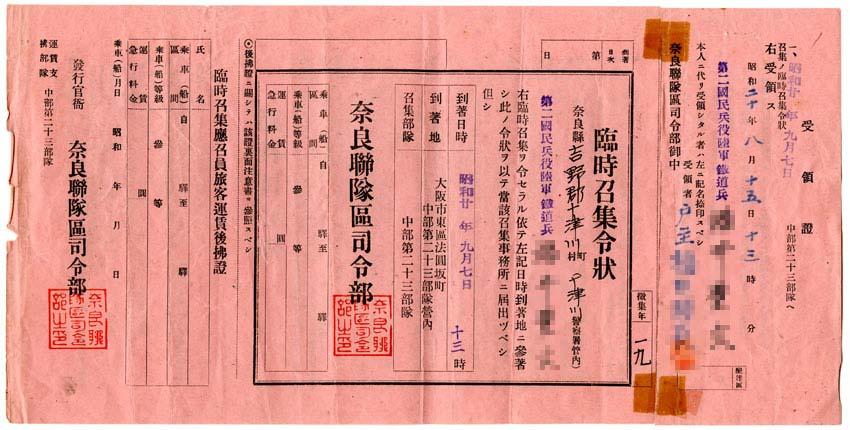 受領證
中部第二十三部隊ヘ
一、昭和廿年九月七日
召集ノ臨時召集令狀
右受領ス
昭和二十年八月十五日十三時 分
第二國民兵役陸軍 鐵道兵
本人ニ代リ受領シタル者ハ左ニ記名捺印スベシ
受領者 戸主
奈良聯隊區司令部御中
配達區
徵集年 一九
臨時召集令狀
奈良縣吉野郡十津川町村(十津川警察署管內)
第二國民兵役陸軍 鐵道兵
右臨時召集ヲ令セラル依テ左記日時到著地ニ參著
シ此ノ令狀ヲ以テ當該召集事務所ニ屆出ヅベシ
但シ
到著日時 昭和廿年九月七日 十三時
到著地 大阪市東區法圓坂町
中部第二十三部隊營內
召集部隊 中部第二十三部隊
奈良聯隊區司令部
到著日次 第 日
乘車(船)區間 自 驛至 驛
乘車(船)等級 參等
運賃 圓
急行料金
◎後拂證ニ關シテハ該證裏面注意書ヲ參照スベシ
臨時召集應召員旅客運賃後拂證
氏名
乘車(船)區間 自 驛至 驛
乘車(船)等級 參等
運賃 圓
急行料金
乘車(船)月日 昭和 年 月 日
發行官衙 奈良聯隊區司令部
運賃支拂部隊 中部第二十三部隊
奈良聯隊區司令部之印
奈良聯隊區司令部之印